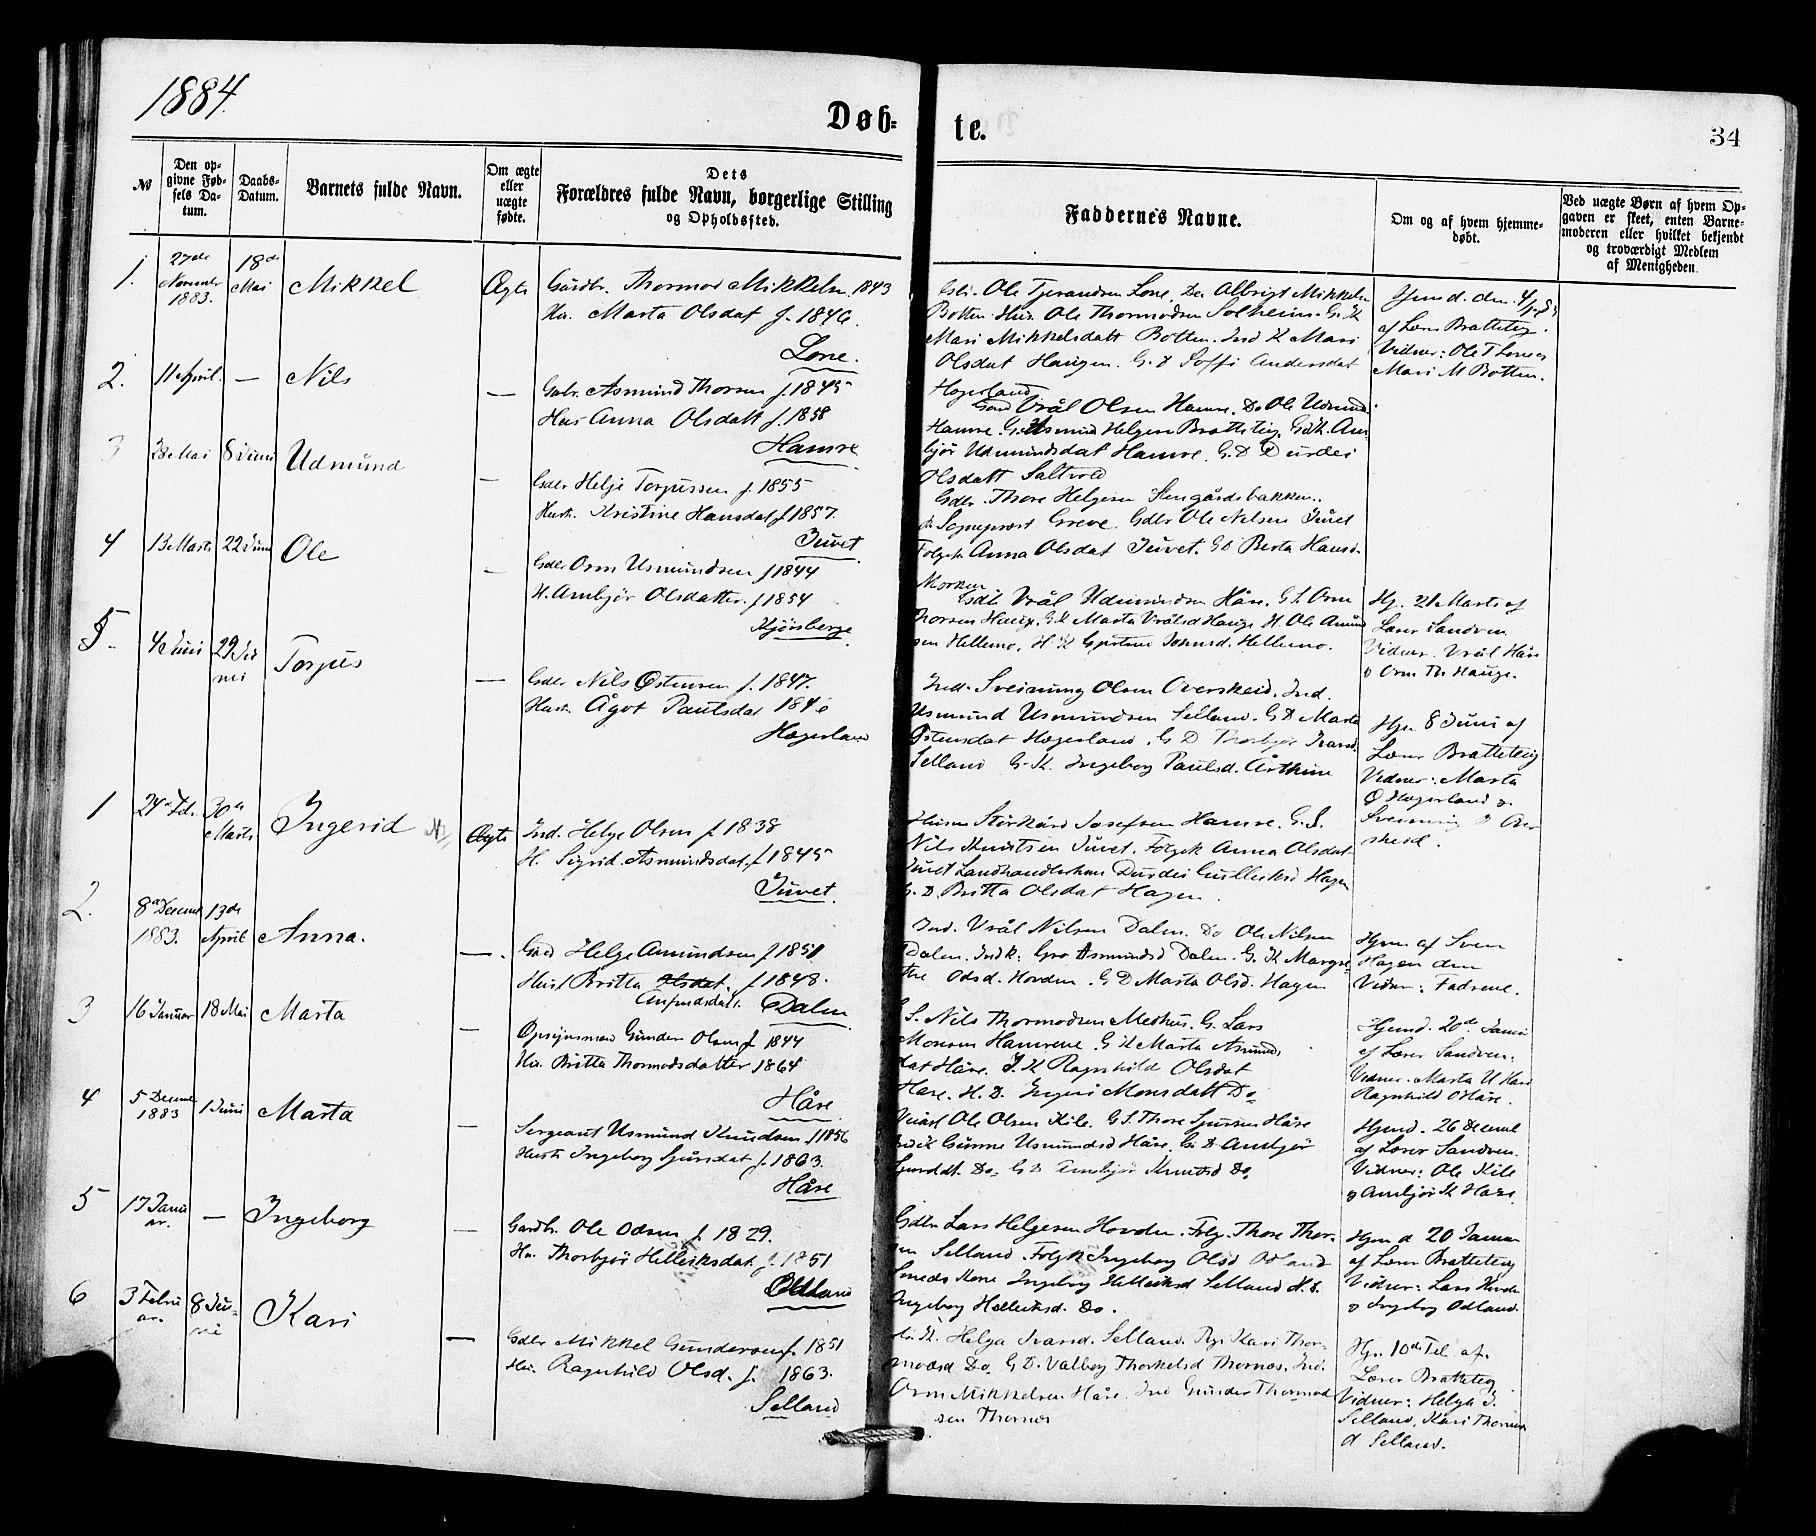 1884.
Døb-
te.
34
№
Den opgivne Fødsels Datum.
Daabs-Datum.
Barnets fulde Navn.
Om ægte eller uægte fødte.
Dets Forældres fulde Navn, borgerlige Stilling og Opholdssted.
Faddernes Navne.
Om og af hvem hjemmedøbt.
Ved uægte Børn af hvem Opgaven er skeet, enten Barnemoderen eller hvilket bekjendt og troværdigt Medlem af Menigheden.
1. 27de November 1883. 18de Mai Mikkel Ægte
Gårdbr. Thormod Mikkelsn. 1843
Hu. Marta Olsdat f. 1846.
Lone.
Ole Tjerandsen Lone. Do Albrigt Mikkelsn
Botten. Hus. Ole Thormodsen Solheim. G. K
Mari Mikkelsdatt Botten. Ind K Mari
Olsdat Haugen. G. D Soffi Andersdat
Hagerland
af Lærer Bratteteig.
Vidner: Ole T Lone og
Mari M Botten.
2. 11 April. — Nils —
Gabr. Asmund Thorsen f. 1845
Hus Anna Olsdatt f. 1858
Hamre
Vrål Olsen Hamre. Do Ole Udmund
Hamre. G. Asmund Helgesen Bratteteig. Gdk. Am-
bjør Udmundsdat Hamre. G. D Durdei
Olsdatt Saltvold
3 28 Mai 8 Juni Udmund —
Gdbr Helje Torjussen f. 1855
Hust. Kristine Hansdat f 1857.
Juvet
Gdbr. Thore Helgesen Stengårdsbakken..
Sogneprest Greve. Gdbr Ole Nilsen Juvet
Folgek Anna Olsdat Juvet. G D Berta Hansd.
Morken
4 13 Marts 22 Juni Ole —
Gdbr Orm Usmundsen f 1844
H. Ambjør Olsdatter. f 1854
Kjørsberge
Vrål Udmundsen Håre. G. S. Orm
Thorsen Hauge. G. K Marta Vrålsd Hauge H. Ole Amund
sen Hellemo. H. K Gjertrud Johnsd. Hellemo.
Hj. 21 Marts af
Lærer Sandven
Vidner. Vrål Håre
o Orm Th Hauge.
5. 4 Juni 29 Juni Torjus —
Gdbr Nils Østensen f. 1847.
Hust. Ågot Paulsdat
Hagerland
Ind. Sveinung Olsen Overskeid. Ind.
Usmund Usmundsen Selland. G D Marta
Østensdat Hagerland. G D Thorbjør Ivarsd
Selland G. K. Ingeborg Paulsd. Årthun
Hjm 8 Juni af
Lærer Bratteteig
Vidner: Marta
Ø Hagerland o.
Sveinung O Over
skeid.
1 24de Feb. 30te Marts Ingerid Ægte
Ind. Helge Olsen f 1838
H. Sigrid. Asmundsdat. f 1845
Juvet.
Husm Storkård Josefsen Hamre. G. S.
Nils Knutsen Juvet. Folgek Anna Olsdat
Juvet Landhandlerkone Durdei Gulleiksd Hagen
G. D Britta Olsdat Hagen.
2. 8de Decemb 1883. 13de April Anna. —
Helge Amundsen f 1851
Hust Britta Olsdat. f 1848.
Dalen
Ind. Vrål Nilsen Dalen. Do Ole Nilsen
Dalen. Indk: Gro Asmundsd Dalen. G. K Margre-
the Odsd. Hovden. G D Marta Olsd. Hagen
Hjem af Sven
Hagen den
Vidner: Fadrene.
3 16 Januar 18 Mai Marta —
Opsynsmand Gunder Olsen f 1844
Hu. Britta Thormodsdatter 1864
Håre
S. Nils Thormodsen Medhus. G. Lars
Monsen Hamrene. G K Marta Asmunds
dat Håre. I K Ragnhild Olsdat
Hare. H. D. Ingeri Monsdatt Do
Hjemd. 20de Janu
af Lærer Sandven.
Vidner. Marta U Hare
Ragnhild O Håre.
4 5 Decemb 1883 1 Juni Marta —
Sergeant Usmund Knudsen f 1856
Hust Ingeborg Sjursdat f. 1863.
Håre
Ole Olsen Kile. G. S. Thore Sjursen Håre
Indk Gunne Usmundsd Håre. G. D Ambjør
Sjursdt. Do. G D Ambjør Knutsd Do
Hjemd. 26 Decemb
af Lærer Sandven.
Vidner: Ole Kile
o Ambjør K Hare
5 17 Januar. — Ingeborg —
Gårdbr. Ole Odsen f. 1829.
Hu. Thorbjør Helleiksdat f. 1851
Odland
Gdbr Lars Helgesen Hovden. Folg. Thore Thor-
sen Selland. Folgk Ingeborg Olsd Odland
Smeds Kone Ingeborg Helleiksd Selland H. D.
Ingeborg Helleiksd. Do.
Hjem d 20 Januar
af Lærer Bratteteig
Vidner: Lars Hovden
o Ingeborg Odland.
6 3 Februar. 8 Juni Kari —
Gdbr Mikkel Gundersen f. 1851
Hu. Ragnhild Olsd. f. 1863.
Selland
Helga Ivarsd. Selland. Pige Kari Thor-
modsd Do. G D. Valborg Thorkelsd Thornes. Ind.
Orm Mikkelsen Håre. Ind Gunder Thormod
sen Thornes
Hj. 10de Feb. af.
Lærer Bratteteig
Vidner: Helga I.
Selland, Kari Thormo
d Selland.